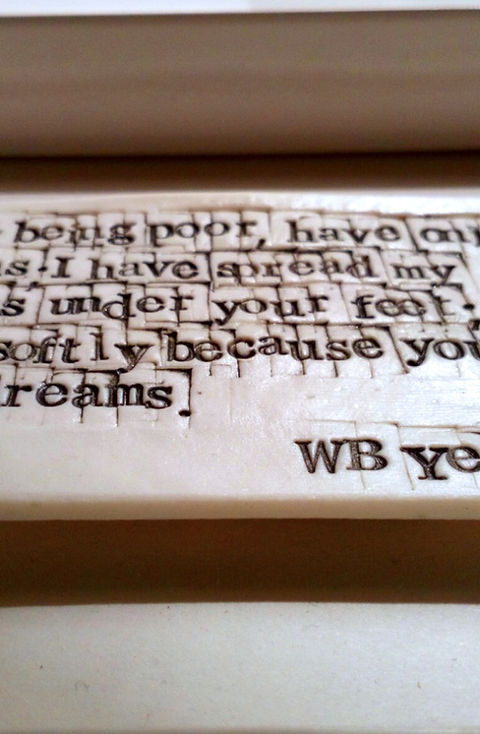 being poor, have on
s; I have spread my
s under your feet;
softly because you
reams.
WB Ye